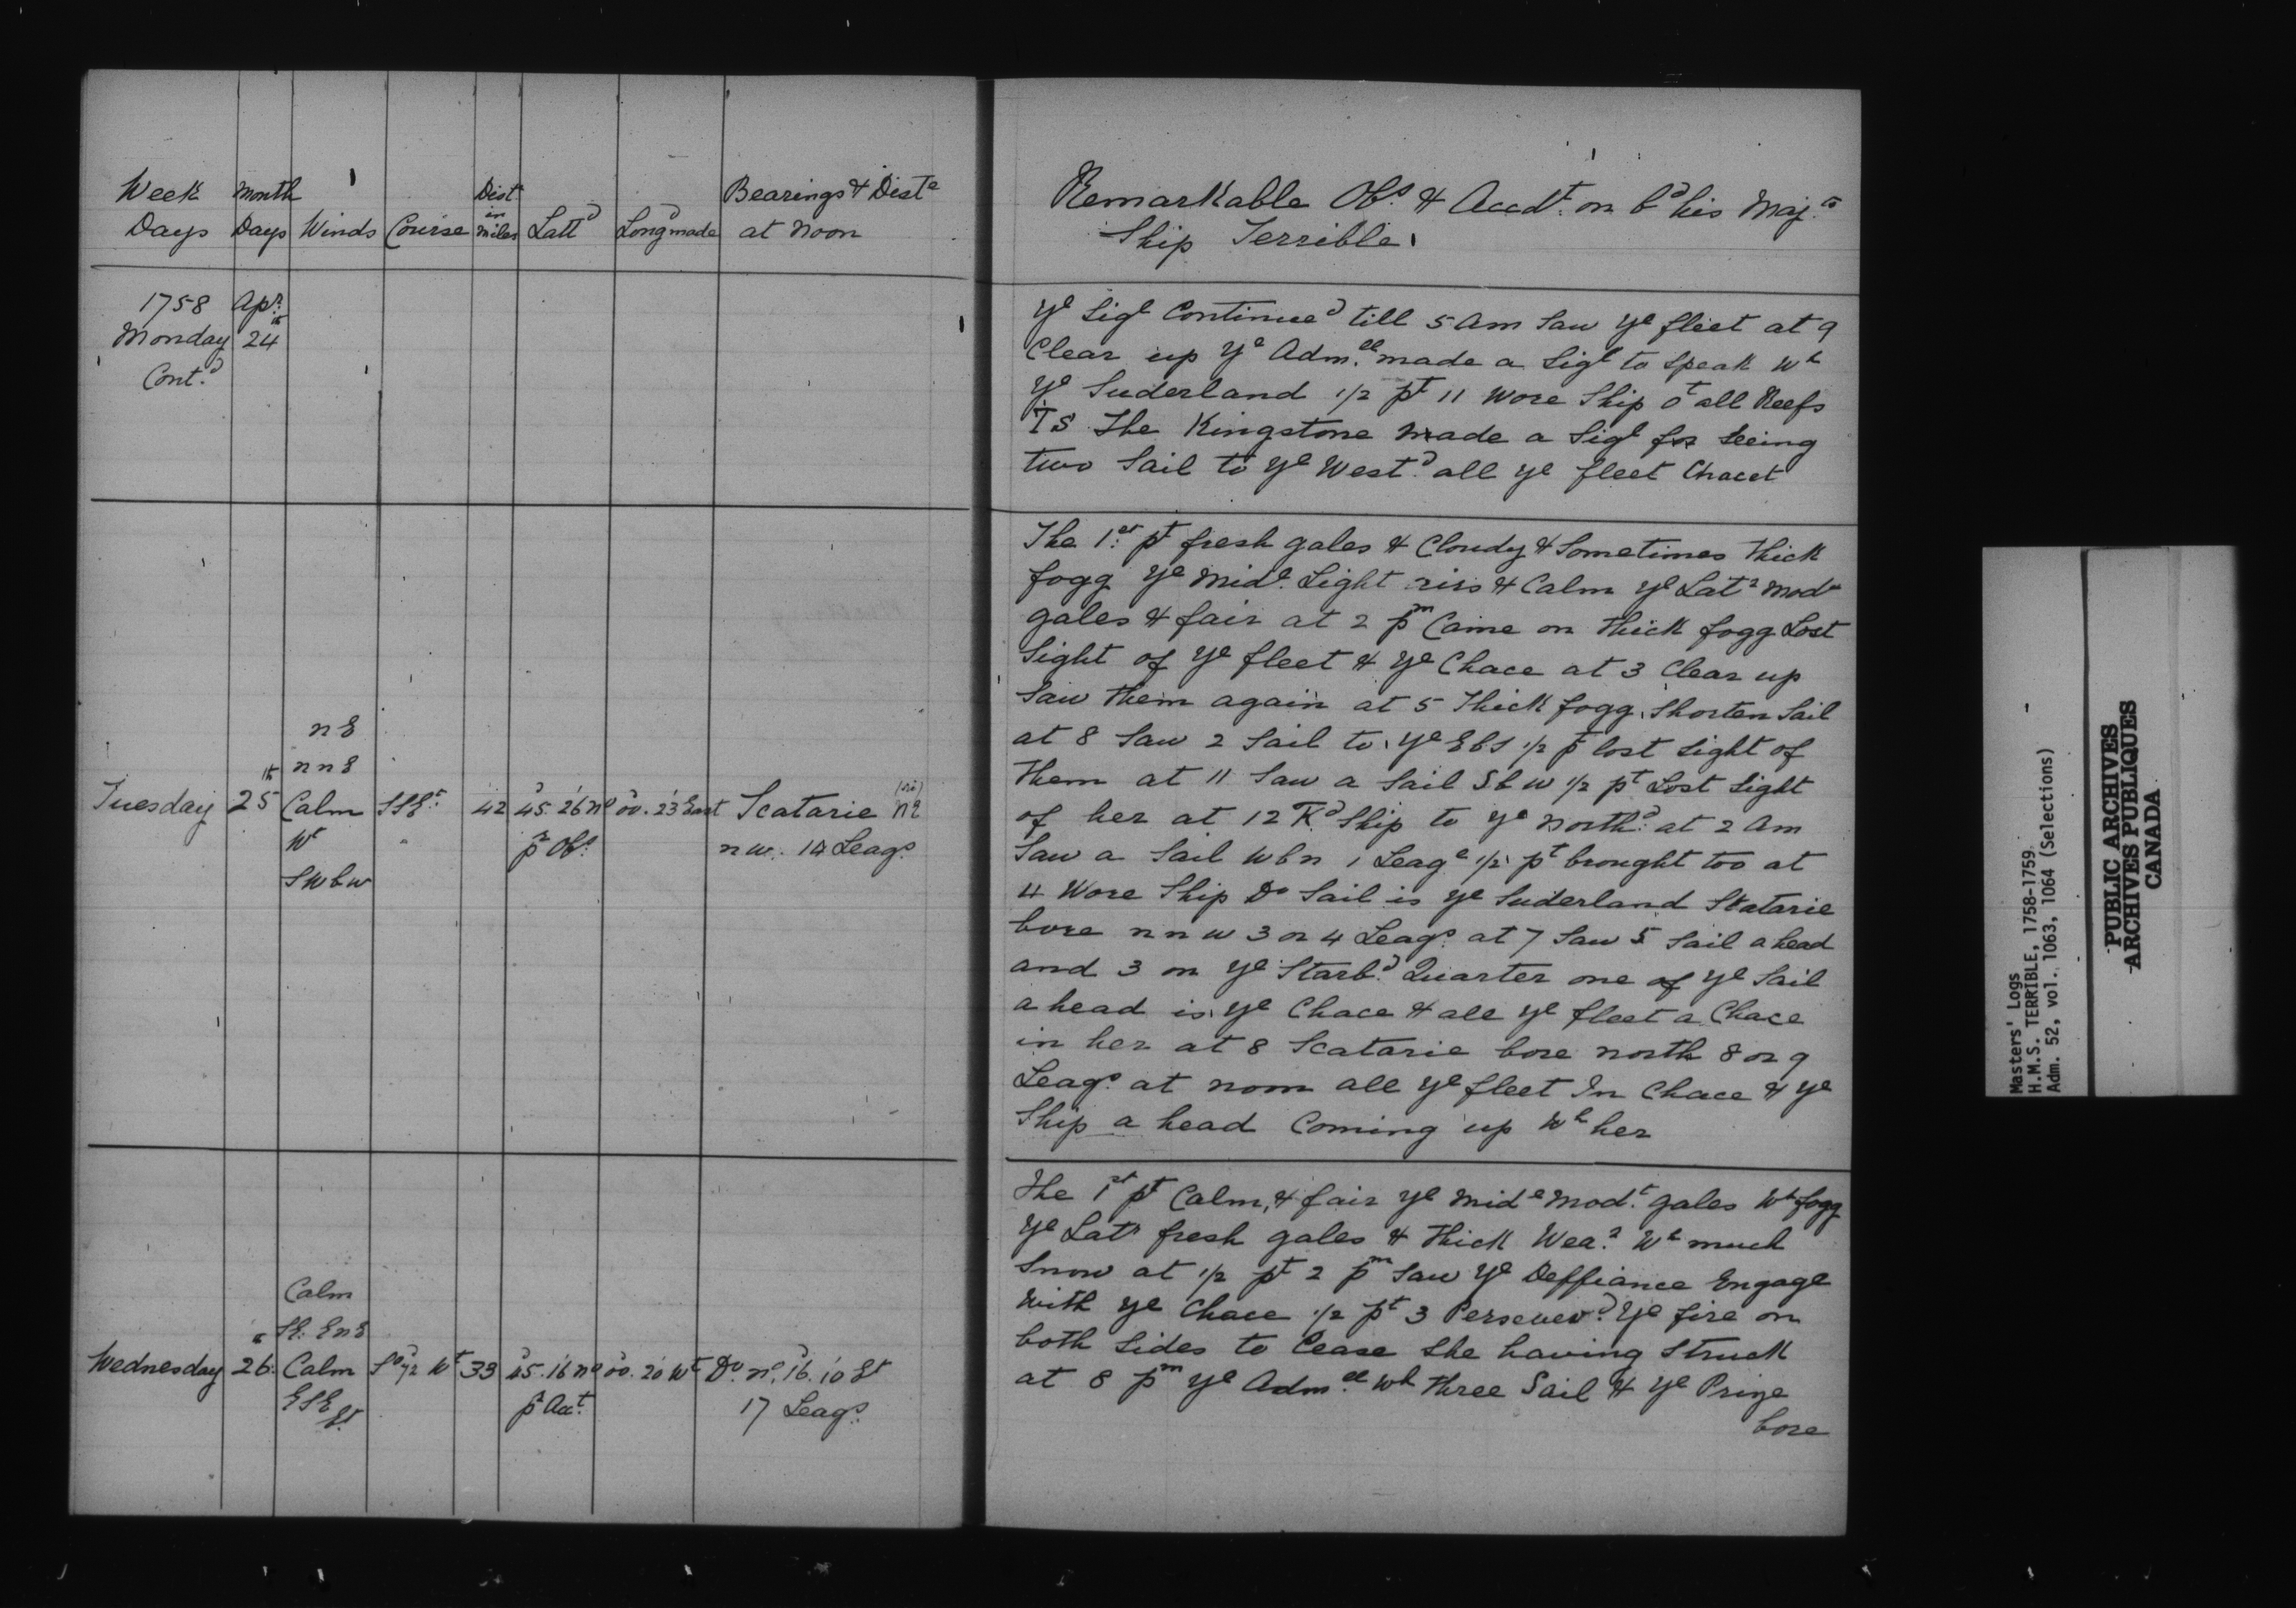 Week Days | Month Days | Winds | Course | Dist in miles | Lattd | Longd made | Bearings & Diste at Noon
1758 Apr
Monday 24th
Contd
n E
n n E
Tuesday 25th Calm SSEt 42 45.26 No 00.23 East Scatarie (sic) N2
Wt
p Obs n w. 14 Leags
SWbw
Calm
SE. EnE
Wednesday 26th Calm So 72 Wt 33 45.16 No 00.20 Wt Do no. 16.10 Et
ESE
Et
p Acct 17 Leags
Remarkable Obs & Accdt. on bd his Majs
Ship Terrible
Ye Sigl Continued till 5 Am Saw Ye fleet at 9
Clear up Ye Admll made a Sigl to Speak Wh
Ye Suderland 1/2 pt 11 Wore Ship ot all Reefs
TS The Kingstone Made a Sigl for Seeing
two Sail to Ye Westd all Ye fleet Chacet
The 1st pt fresh gales & Cloudy & Sometimes thick
fogg Ye Mide Light airs & Calm Ye Latr Modt
gales & fair at 2 pm Came on thick fogg Lost
Sight of Ye fleet & Ye Chace at 3 Clear up
Saw them again at 5 Thick fogg, Shorten Sail
at 8 Saw 2 Sail to Ye EbS 1/2 p lost Sight of
them at 11 Saw a Sail SbW 1/2 pt Lost Sight
of her at 12 Td Ship to Ye Northd at 2 Am
Saw a Sail Wbn 1 Leage 1/2 pt brought too at
4 Wore Ship Do Sail is Ye Suderland Skatarie
bore nnw 3 or 4 Leags at 7 Saw 5 Sail a head
and 3 on Ye Starbd Quarter one of Ye Sail
a head is Ye Chace & all Ye fleet a Chace
in her at 8 Scatarie bore north 8 or 9
Leags at noon all Ye fleet In Chace & Ye
Ship a head Coming up Wh her
The 1st pt Calm, & fair Ye Mide Modt. gales Wh fogg
Ye Latr fresh gales & thick Wear Wh much
Snow at 1/2 pt 2 pm Saw Ye Deffiance Engage
With Ye Chace 1/2 pt 3 Perseved Ye fire on
both Sides to Cease She having Struck
at 8 pm Ye Admll Wh three Sail & Ye Prize
bore
Masters' Logs
H.M.S. TERRIBLE, 1758-1759
Adm. 52, vol. 1063, 1064 (Selections)
PUBLIC ARCHIVES
ARCHIVES PUBLIQUES
CANADA